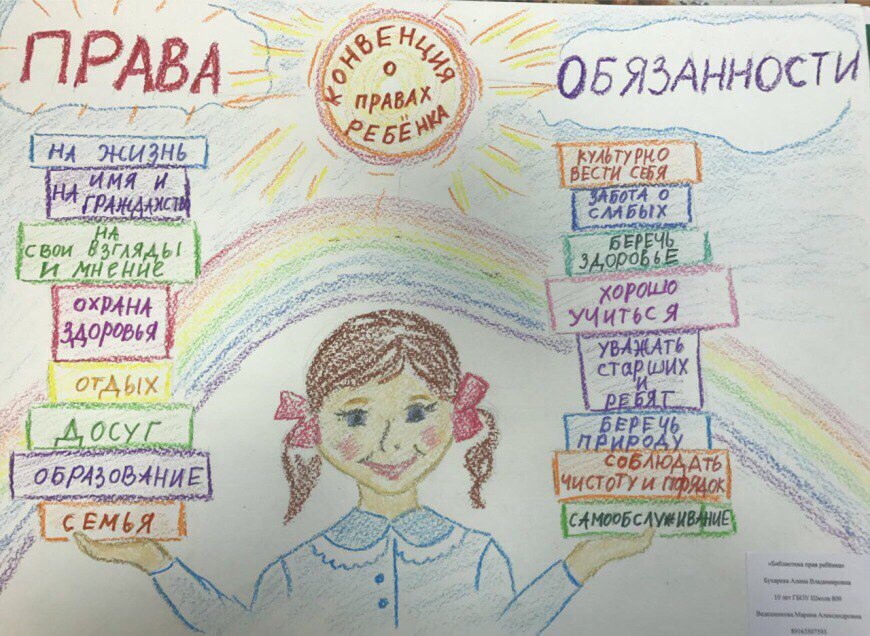 ПРАВА
КОНВЕНЦИЯ
О
ПРАВАХ
РЕБЁНКА
ОБЯЗАННОСТИ
НА ЖИЗНЬ
НА ИМЯ И
ГРАЖДАНСТВО
НА
СВОИ ВЗГЛЯДЫ
И МНЕНИЕ
ОХРАНА
ЗДОРОВЬЯ
ОТДЫХ
ДОСУГ
ОБРАЗОВАНИЕ
СЕМЬЯ
КУЛЬТУРНО
ВЕСТИ СЕБЯ
ЗАБОТА О
СЛАБЫХ
БЕРЕЧЬ
ЗДОРОВЬЕ
ХОРОШО
УЧИТЬСЯ
УВАЖАТЬ
СТАРШИХ
И
РЕБЯТ
БЕРЕЧЬ
ПРИРОДУ
СОБЛЮДАТЬ
ЧИСТОТУ И ПОРЯДОК
САМООБСЛУЖИВАНИЕ
«Библиотека прав ребёнка»
Бухарева Алина Владимировна
10 лет ГБОУ Школа 809
Марина Александровна